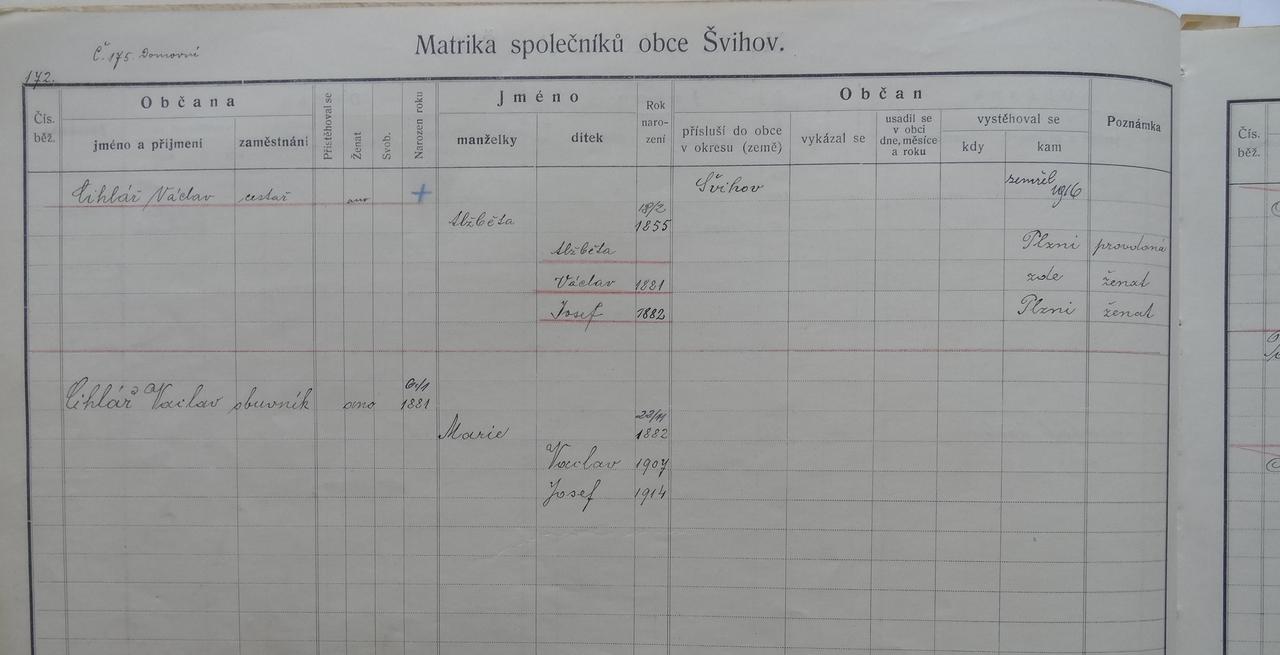 Č. 175. Domovní
Matrika společníků obce Švihov.
172.
Čís. běž.
Občana
jméno a příjmení
zaměstnání
Přistěhoval se
Ženat
Svob.
Narozen roku
Jméno
manželky
dítek
Rok naro- zení
Občan
přísluší do obce v okresu (země)
vykázal se
usadil se v obci dne, měsíce a roku
vystěhoval se
kdy
kam
Poznámka
Čís. běž.
Cihlář Václav cestař ano + Švihov zemřel 1916
Alžběta 18/2 1855
Alžběta Plzni provdaná
Václav 1881 zde ženat
Josef 1882 Plzni ženat
Cihlář Vaclav obuvník ano 1881
Marie 1882
Vaclav 1907
Josef 1914